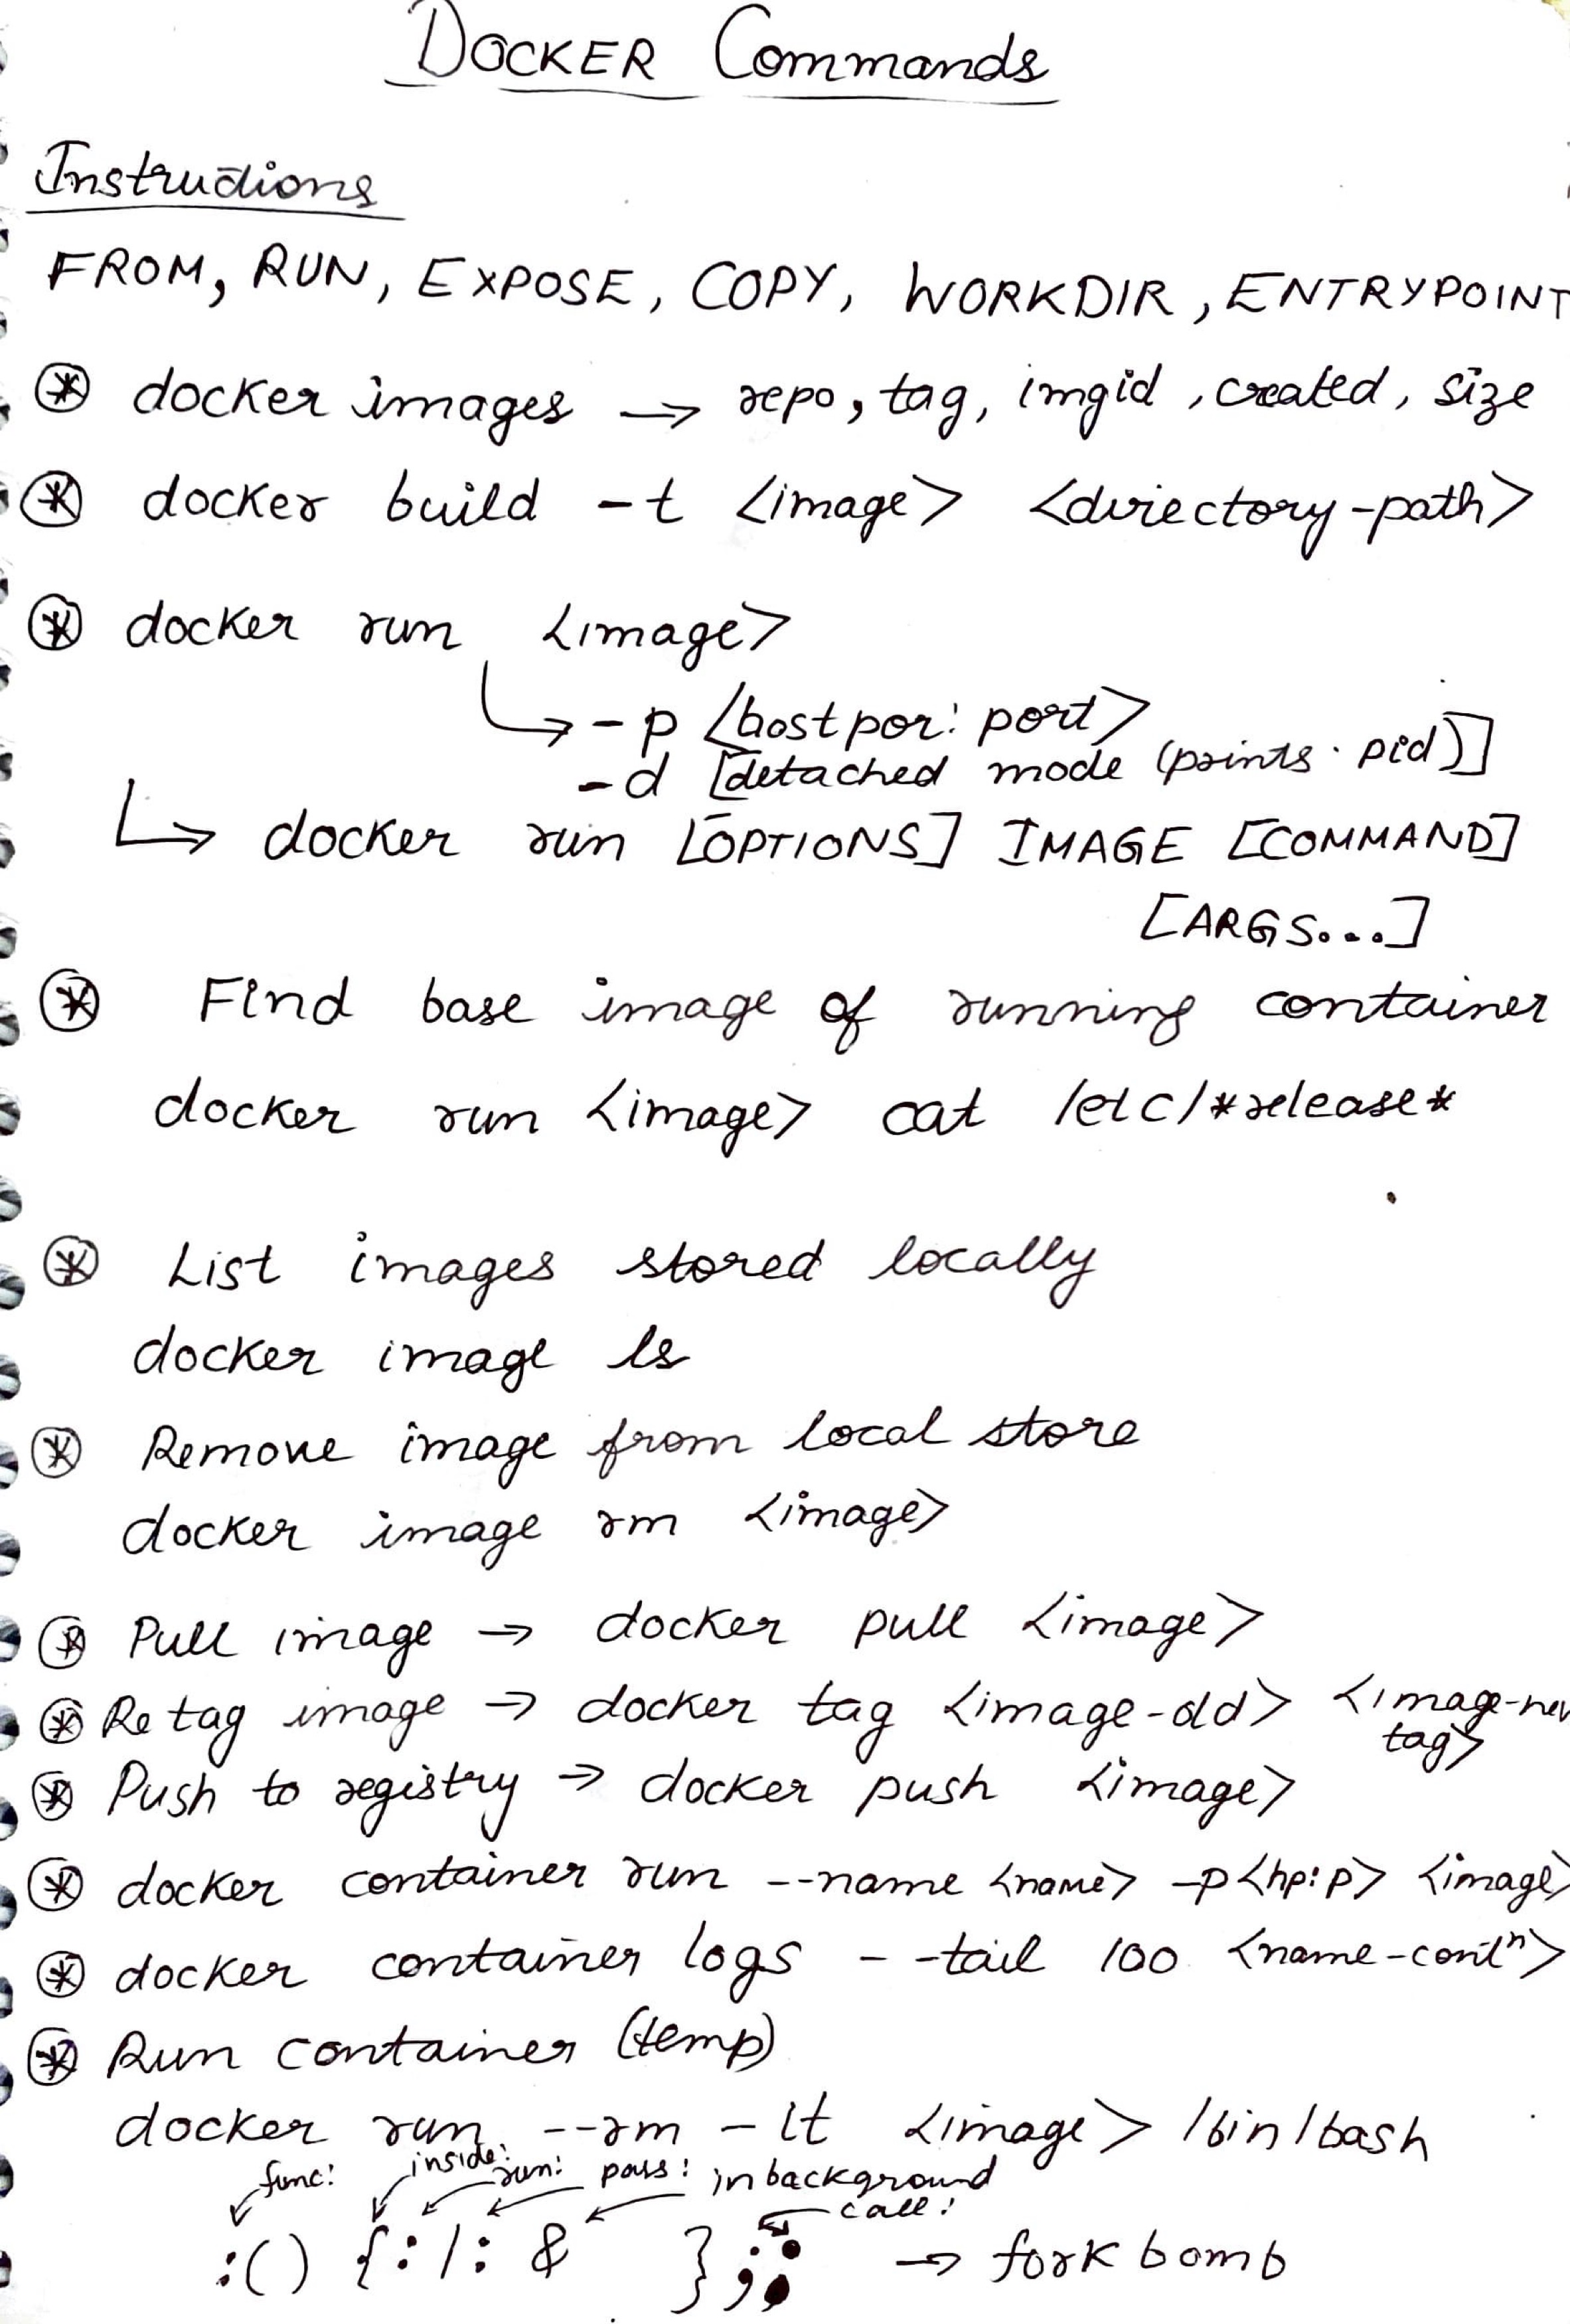 DOCKER Commands
Instructions
FROM, RUN, EXPOSE, COPY, WORKDIR, ENTRYPOINT
⊛ docker images → repo, tag, imgid, created, size
⊛ docker build -t <image> <directory-path>
⊛ docker run <image>
↳ -p <hostpor: port>
-d [detached mode (prints pid)]
↳ docker run [OPTIONS] IMAGE [COMMAND]
[ARGS...]
⊛ Find base image of running container
docker run <image> cat /etc/*release*
⊛ List images stored locally
docker image ls
⊛ Remove image from local store
docker image rm <image>
⊛ Pull image → docker pull <image>
⊛ Retag image → docker tag <image-old> <image-new
tag>
⊛ Push to registry → docker push <image>
⊛ docker container run --name <name> -p <hp:p> <image>
⊛ docker container logs --tail 100 <name-contⁿ>
⊛ Run container (temp)
docker run --rm -it <image> /bin/bash
func: inside: run: pass: in background
call:
:() {:|: & };: → fork bomb